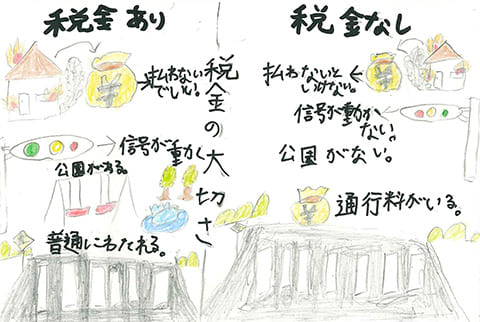 税金の大切さ
税金あり
払わない
でいい。
信号が動く
公園がある。
普通にわたれる。
税金なし
払わないと
いけない。
信号が動か
ない。
公園がない。
通行料がいる。
¥
¥